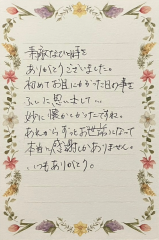 素敵なお食事を
ありがとうございました。
初めてお目にかかった日の事を
ふいに思い出して…
妙に懐かしかったですね。
あれからずっとお世話になって
本当に感謝しかありません。
いつもありがとう。